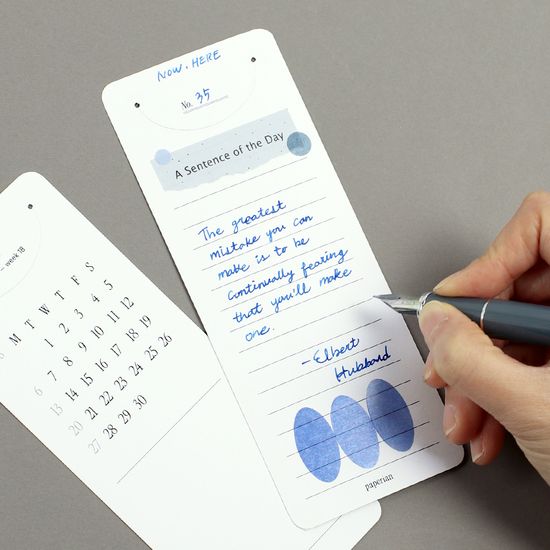 NOW. HERE
No. 35
A Sentence of the Day
The greatest
mistake you can
make is to be
continually fearing
that you'll make
one.
- Elbert
Hubbard
paperian
week 18
M T W T F S
1 2 3 4 5
6 7 8 9 10 11 12
13 14 15 16 17 18 19
20 21 22 23 24 25 26
27 28 29 30